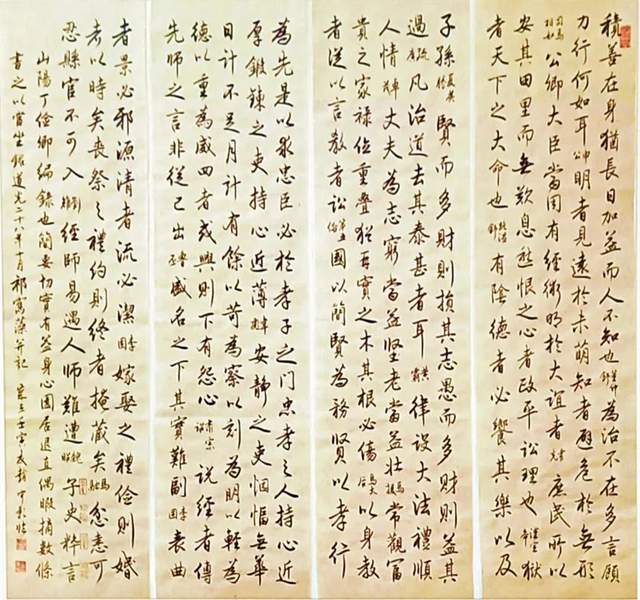 積善在身猶長日加益而人不知也為治不在多言顧
力行何如耳申公明者見遠於未萌知者避危於無形
司馬相如公卿大臣當用有經術明於大誼者庶民所以
安其田里而無歎息愁恨之心者政平訟理也獄
者天下之大命也有陰德者必饗其樂以及
子孫賢而多財則損其志愚而多財則益其
過疏廣凡治道去其泰甚者耳黃霸律設大法禮順
人情卓茂丈夫為志窮當益堅老當益壯馬援常觀富
貴之家祿位重疊猶再實之木其根必傷馬太后以身教
者從以言教者訟第五倫國以簡賢為務賢以孝行
為先是以求忠臣必於孝子之門忠孝之人持心近
厚鍛鍊之吏持心近薄韋彪安靜之吏悃愊無華
日計不足月計有餘以苛為察以刻為明以輕為
德以重為威四者或興則下有怨心肅宗說經者傳
先師之言非從己出魯丕盛名之下其實難副李固表曲
者景必邪源清者流必潔李固嫁娶之禮儉則婚
者以時矣喪祭之禮約則終者掩藏矣馬融忿恚可
忍縣官不可入劉矩經師易遇人師難遭魏昭子史粹言
山陽丁儉卿編錄也簡要切實有益身心園居退直偶暇摘數條
書之以當坐銘道光二十八年十月祁寯藻并記